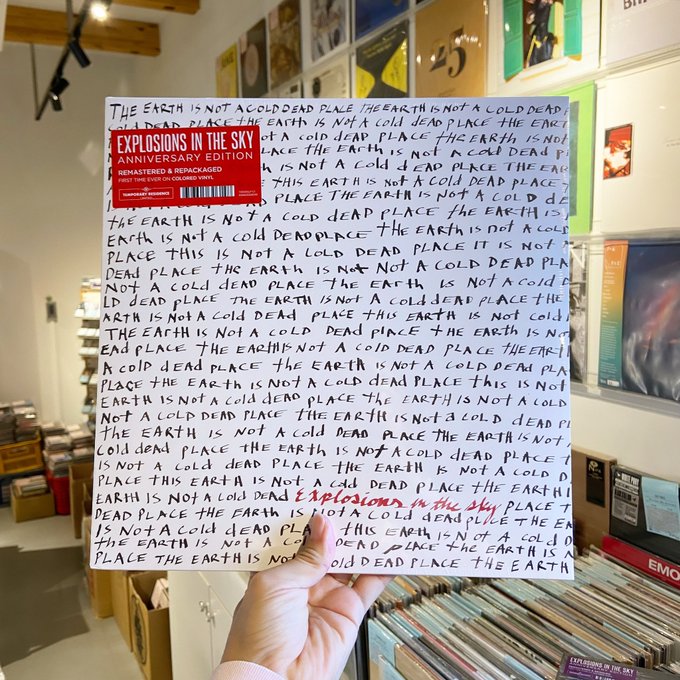 THE EARTH IS NOT A COLD DEAD PLACE THE EARTH IS NOT A COLD DEAD P
COLD DEAD PLACE THE EARTH IS NOT A COLD DEAD PLACE THE EART
EXPLOSIONS IN THE SKY
ANNIVERSARY EDITION
REMASTERED & REPACKAGED
FIRST TIME EVER ON COLORED VINYL
TEMPORARY RESIDENCE
OT A COLD DEAD PLACE THE EARTH IS NOT
LACE THE EARTH IS NOT A COLD DEAD P
IS NOT A COLD DEAD PLACE THE EAR
THIS EARTH IS NOT A COLD DEAD PLACE
PLACE THE EARTH IS NOT A COLD DE
THE EARTH IS NOT A COLD DEAD PLACE THE EARTH IS
EARTH IS NOT A COLD DEAD PLACE THE EARTH IS NOT A COLD
PLACE THIS IS NOT A COLD DEAD PLACE IT IS NOT
DEAD PLACE THE EARTH IS NOT NOT A COLD DEAD PLA
NOT A COLD DEAD PLACE THE EARTH IS NOT A COLD D
LD DEAD PLACE THE EARTH IS NOT A COLD DEAD PLACE THE
ARTH IS NOT A COLD DEAD PLACE THIS EARTH IS NOT COLD
THE EARTH IS NOT A COLD DEAD PLACE THE EARTH IS NO
EAD PLACE THE EARTH IS NOT A COLD DEAD PLACE THE EART
A COLD DEAD PLACE THE EARTH IS NOT A COLD DEAD PLA
PLACE THE EARTH IS NOT A COLD DEAD PLACE THIS IS NOT
EARTH IS NOT A COLD DEAD PLACE THE EARTH IS NOT A COLD
NOT A COLD DEAD PLACE THE EARTH IS NOT A COLD DEAD PL
THE EARTH IS NOT A COLD DEAD PLACE THE EARTH IS NOT
COLD DEAD PLACE THE EARTH IS NOT A COLD DEAD PLACE T
IS NOT A COLD DEAD PLACE THE EARTH IS NOT A COLD D
PLACE THIS EARTH IS NOT A COLD DEAD PLACE THE EARTH I
EARTH IS NOT A COLD DEAD Explosions in the sky PLACE T
DEAD PLACE THE EARTH IS NOT A COLD DEAD PLACE THE EA
IS NOT A COLD DEAD PLA THIS EARTH IS NOT A COLD D
THE EARTH IS NOT A CO DEAD PLACE THE EARTH IS NOT A
PLACE THE EARTH IS NOT COLD DEAD PLACE THE EARTH
25
EMO
EXPLOSIONS IN THE SKY